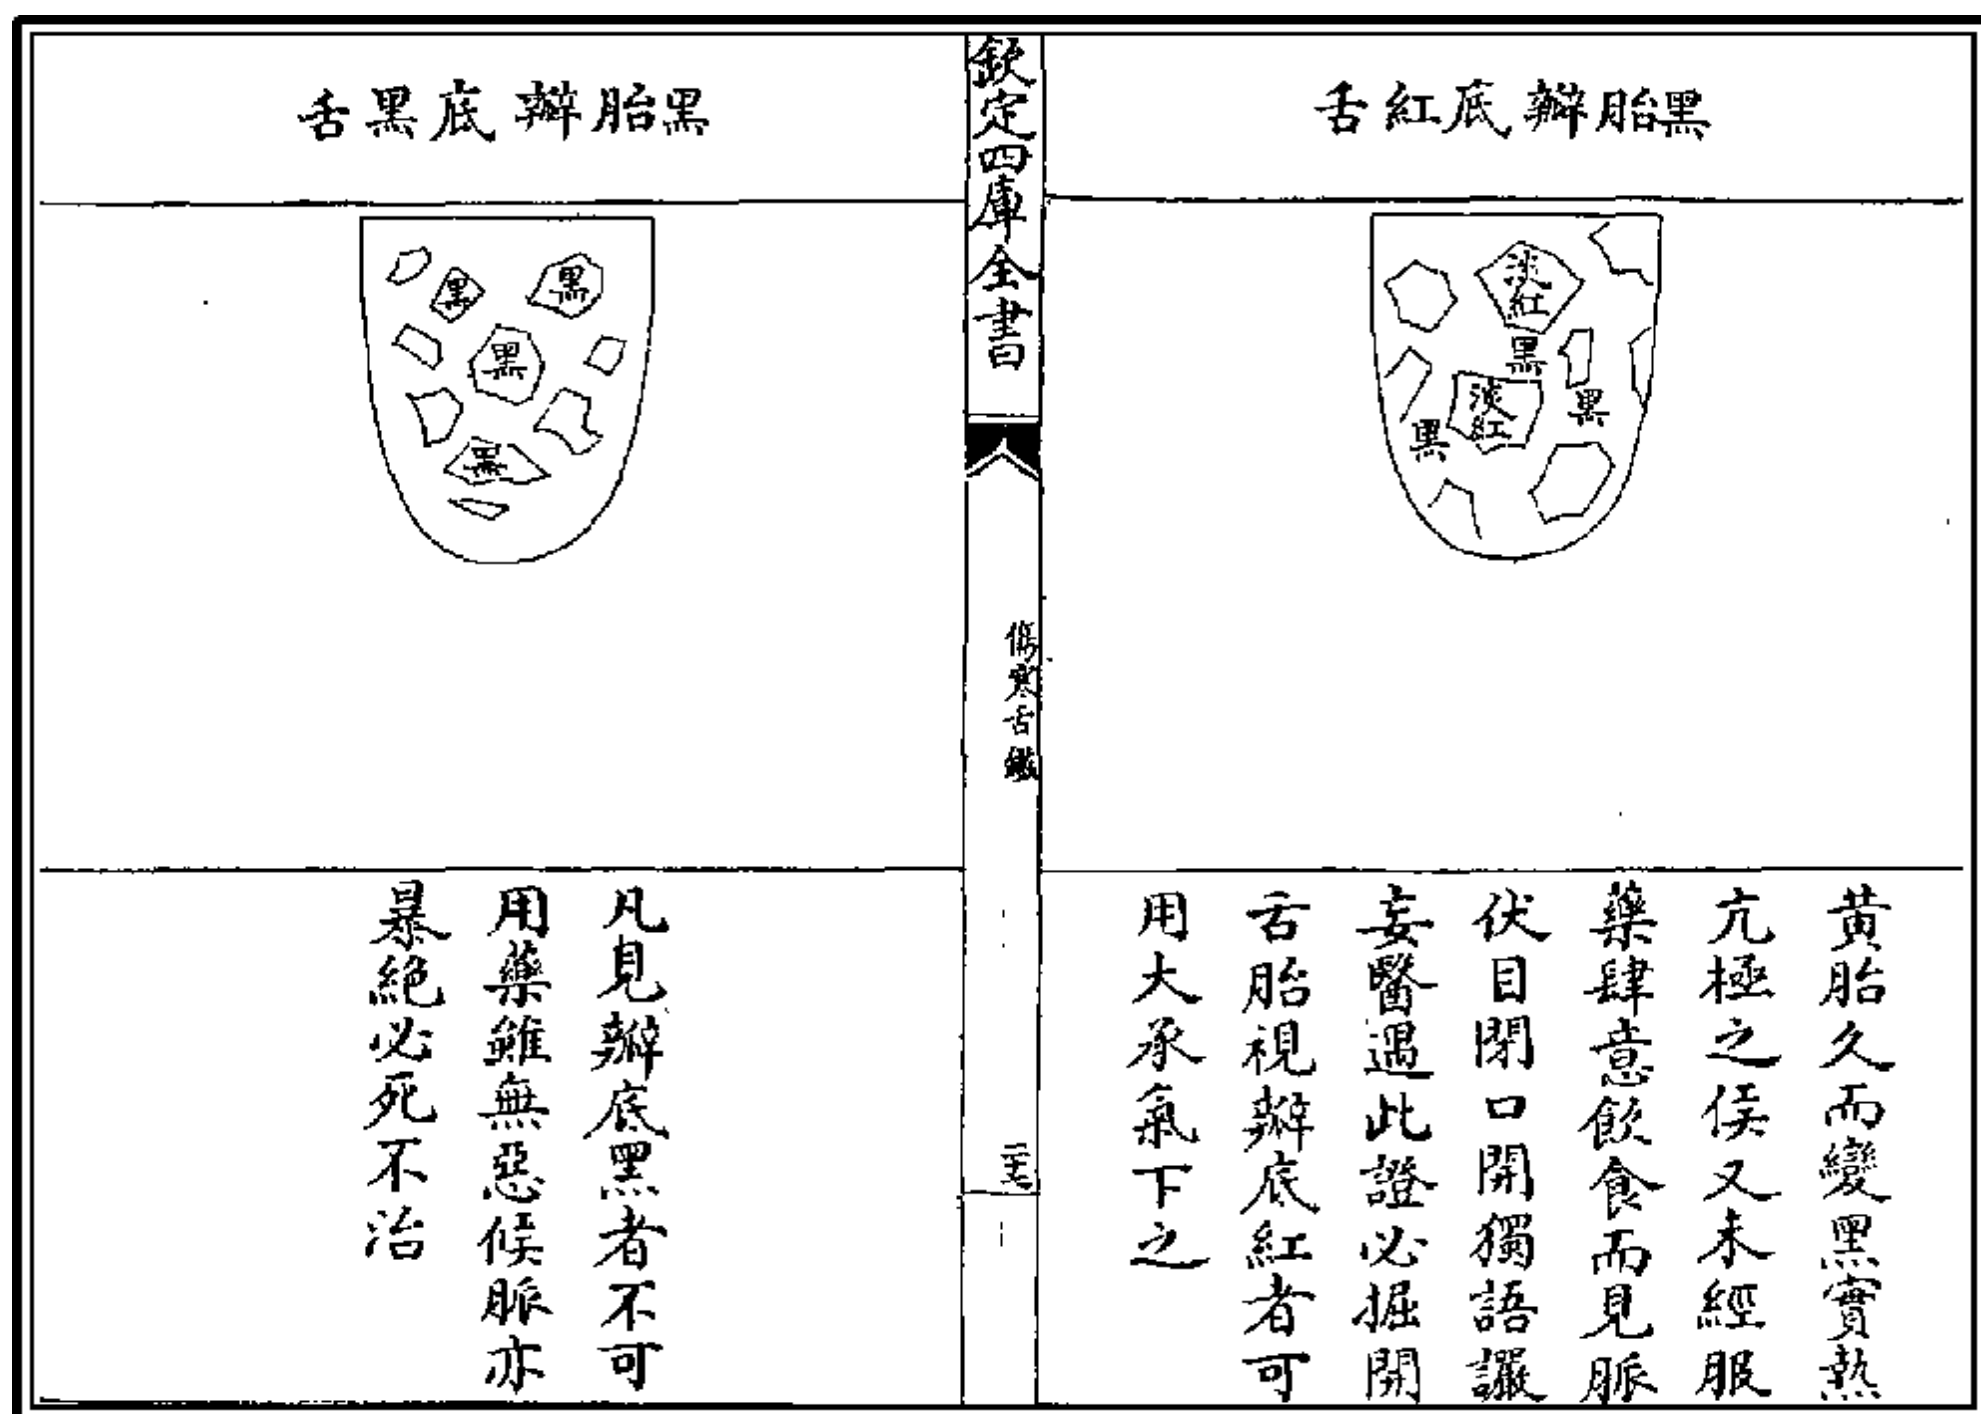 黑胎辦底紅舌
淡紅
黑
淡紅
黑
黑
黃胎久而變黑實熱
亢極之侯又未經服
藥肆意飲食而見脈
伏目閉口開獨語讝
妄醫遇此證必掘開
舌胎視辦底紅者可
用大承氣下之
欽定四庫全書
傷寒舌鑑
二十七
黑胎辦底黑舌
黑
黑
黑
黑
凡見辦底黑者不可
用藥雖無惡候脈亦
暴絕必死不治